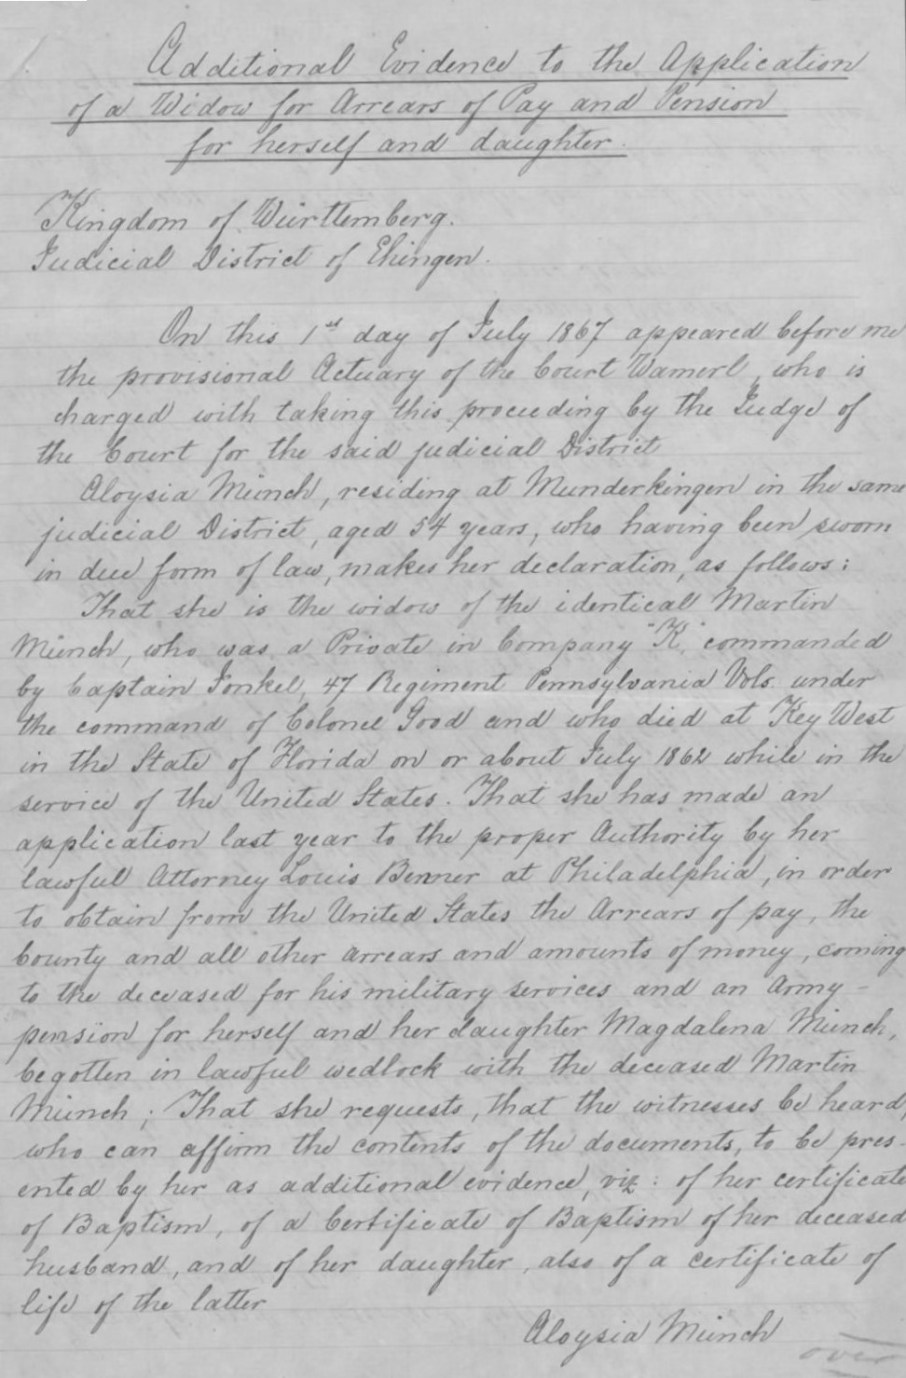 Additional Evidence to the Application
of a Widow for Arrears of Pay and Pension
for herself and daughter.
Kingdom of Württemberg.
Judicial District of Ehingen.
On this 1st day of July 1867 appeared before me
the provisional Actuary of the Court Wamerl, who is
charged with taking this proceeding by the Judge of
the Court for the said judicial District
Aloysia Münch, residing at Munderkingen in the same
judicial District, aged 54 years, who having been sworn
in due form of law, makes her declaration, as follows:
That she is the widow of the identical Martin
Münch, who was a Private in Company "K," commanded
by Captain Jonkel, 47 Regiment Pennsylvania Vols. under
the command of Colonel Good and who died at Key West
in the State of Florida on or about July 1862 while in the
service of the United States. That she has made an
application last year to the proper Authority by her
lawful Attorney Louis Benner at Philadelphia, in order
to obtain from the United States the Arrears of pay, the
bounty and all other arrears and amounts of money, coming
to the deceased for his military services and an Army-
pension for herself and her daughter Magdalena Münch,
begotten in lawful wedlock with the deceased Martin
Münch; That she requests, that the witnesses be heard,
who can affirm the contents of the documents, to be pres-
ented by her as additional evidence, viz: of her certificate
of Baptism, of a Certificate of Baptism of her deceased
husband, and of her daughter, also of a certificate of
life of the latter
Aloysia Münch
over